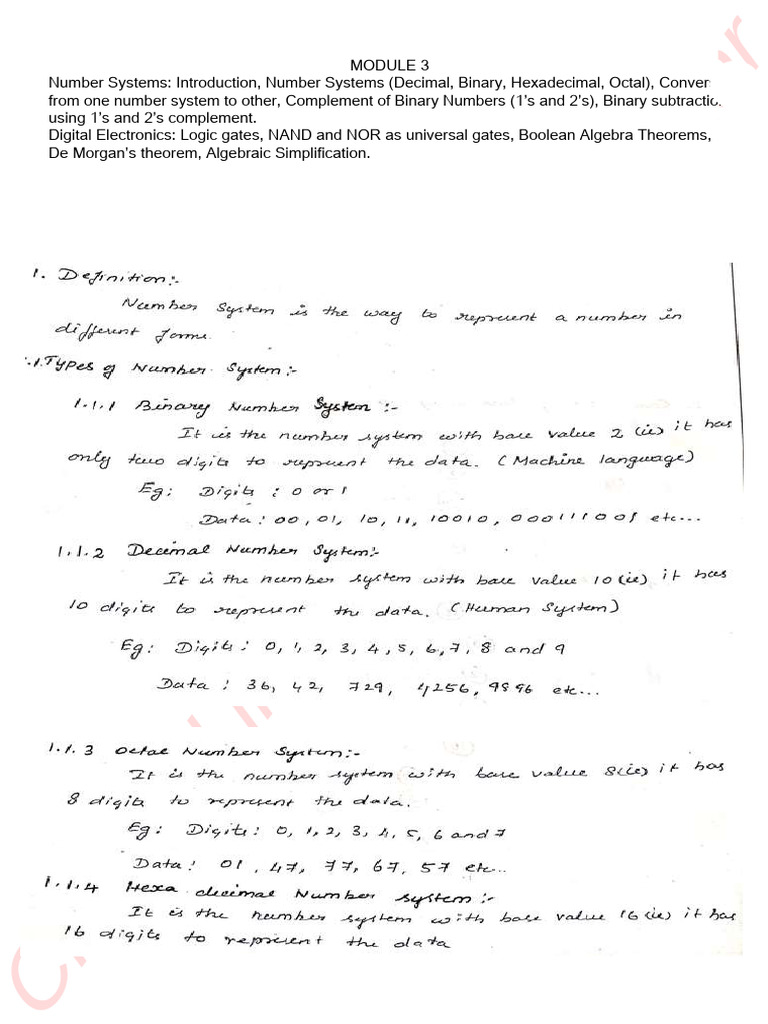 MODULE 3
Number Systems: Introduction, Number Systems (Decimal, Binary, Hexadecimal, Octal), Conver
from one number system to other, Complement of Binary Numbers (1's and 2's), Binary subtractio
using 1's and 2's complement.
Digital Electronics: Logic gates, NAND and NOR as universal gates, Boolean Algebra Theorems,
De Morgan's theorem, Algebraic Simplification.
1. Definition:-
Number System is the way to represent a number in
different forms.
.1.Types of Number System:-
1.1.1 Binary Number System :-
It is the number system with base value 2 (ie) it has
only two digits to represent the data. (Machine language)
Eg: Digits : 0 or 1
Data : 00, 01, 10, 11, 10010, 000111001 etc...
1.1.2 Decimal Number System:-
It is the number system with base value 10 (ie) it has
10 digits to represent the data. (Human System)
Eg: Digits : 0, 1, 2, 3, 4, 5, 6, 7, 8 and 9
Data : 36, 42, 729, 4256, 9896 etc...
1.1.3 Octal Number System:-
It is the number system with base value 8 (ie) it has
8 digits to represent the data.
Eg: Digits: 0, 1, 2, 3, 4, 5, 6 and 7
Data: 01, 47, 77, 67, 57 etc...
1.1.4 Hexa decimal Number system :-
It is the number system with base value 16 (ie) it has
16 digits to represent the data